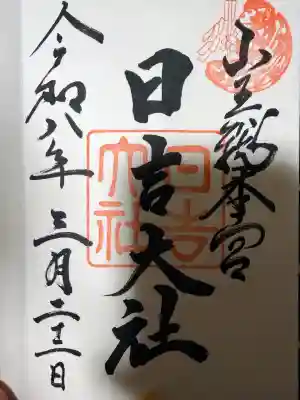 山王総本宮
日吉大社
日吉大社
令和八年三月二十二日